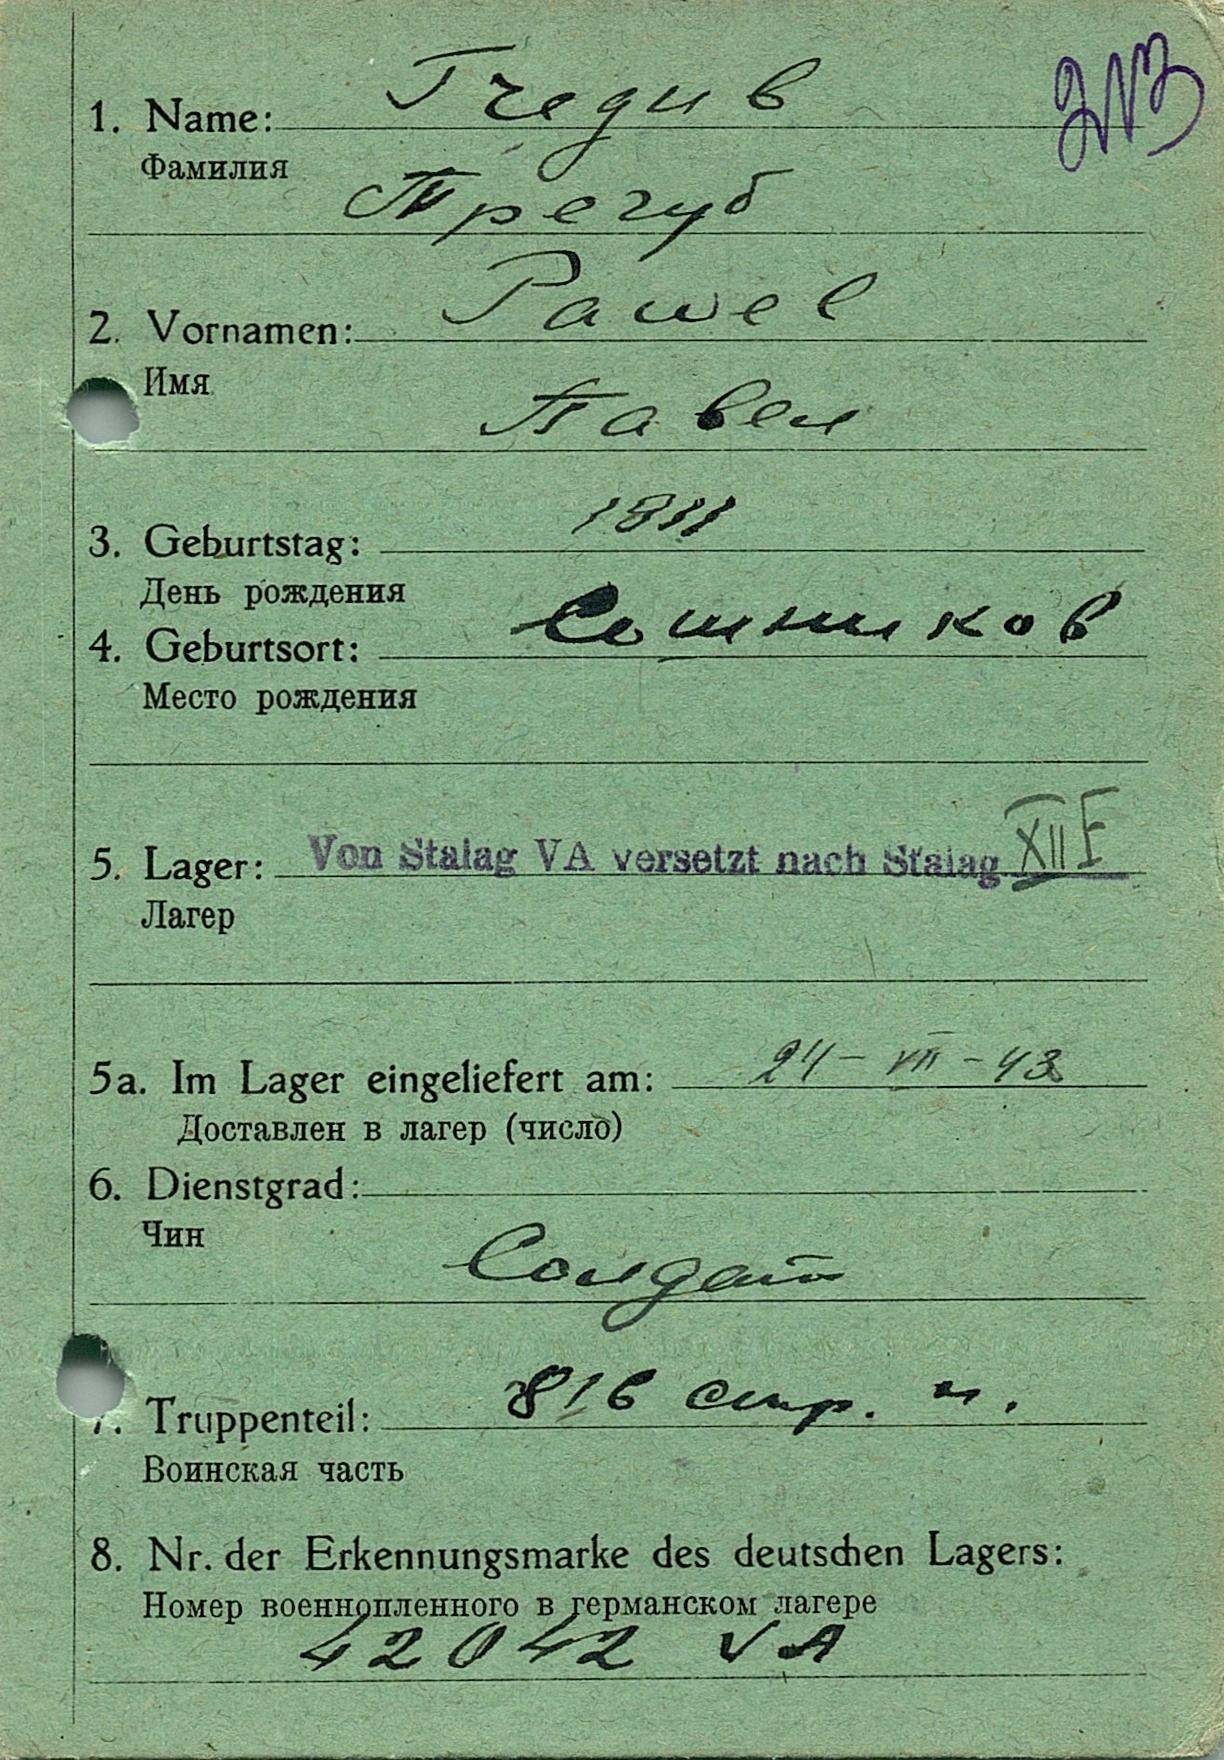 1. Name: Гчедив
Фамилия
Трегуб
2. Vornamen: Pawel
Имя
Павел
1911
3. Geburtstag:
День рождения
4. Geburtsort: Сошников
Место рождения
5. Lager: Von Stalag VA versetzt nach Stalag XII F
Лагер
5a. Im Lager eingeliefert am: 24-VII-43
Доставлен в лагер (число)
6. Dienstgrad:
Чин
Солдат
7. Truppenteil: 816 стр. п.
Воинская часть
8. Nr. der Erkennungsmarke des deutschen Lagers:
Номер военнопленного в германском лагере
42042 VA